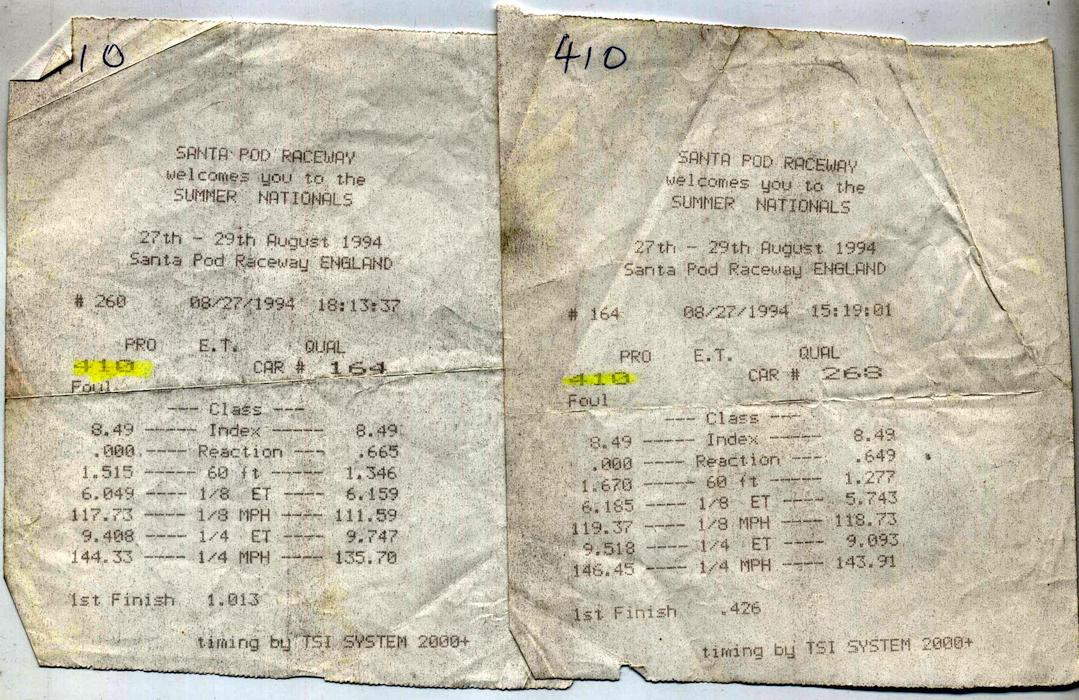 10
SANTA POD RACEWAY
welcomes you to the
SUMMER NATIONALS
27th - 29th August 1994
Santa Pod Raceway ENGLAND
# 260 08/27/1994 18:13:37
PRO E.T. QUAL
410 CAR # 164
Foul
--- Class ---
8.49 ----- Index ---- 8.49
.000 ---- Reaction --- .665
1.515 ----- 60 ft ---- 1.346
6.049 ---- 1/8 ET ---- 6.159
117.73 ---- 1/8 MPH ---- 111.59
9.408 ---- 1/4 ET ---- 9.747
144.33 ---- 1/4 MPH ---- 135.70
1st Finish 1.013
timing by TSI SYSTEM 2000+
410
SANTA POD RACEWAY
welcomes you to the
SUMMER NATIONALS
27th - 29th August 1994
Santa Pod Raceway ENGLAND
# 164 08/27/1994 15:19:01
PRO E.T. QUAL
410 CAR # 268
Foul
--- Class ---
8.49 ----- Index ---- 8.49
.000 ---- Reaction --- .649
1.670 ----- 60 ft ---- 1.277
6.185 ---- 1/8 ET ---- 5.743
119.37 ---- 1/8 MPH ---- 118.73
9.518 ---- 1/4 ET ---- 9.093
146.45 ---- 1/4 MPH ---- 143.91
1st Finish .426
timing by TSI SYSTEM 2000+